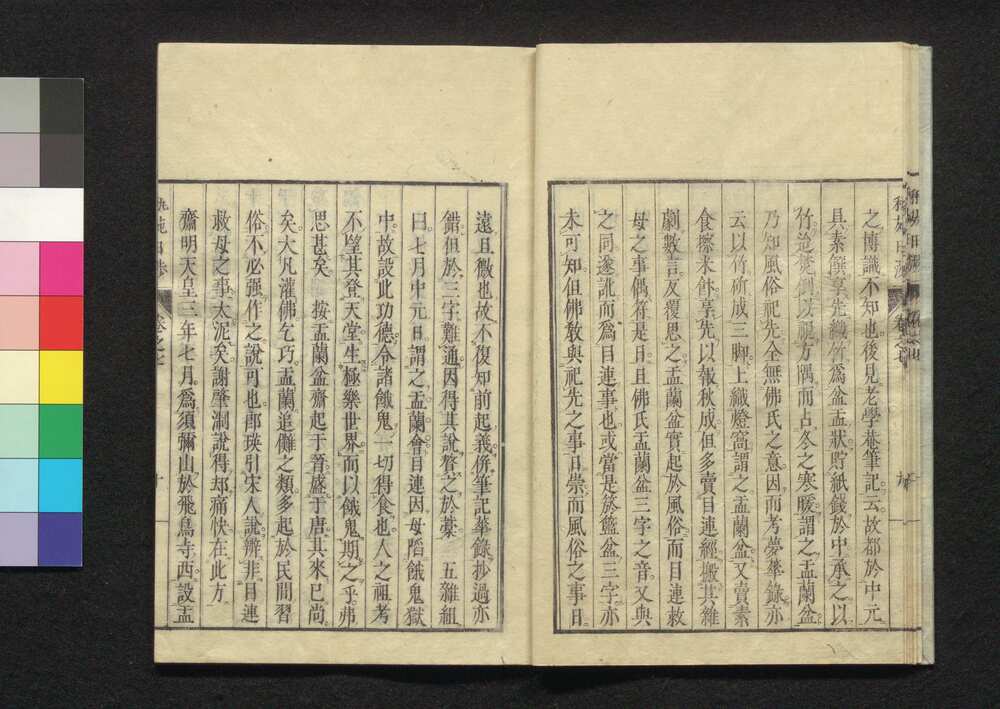 之博識不知也後見老學菴筆記云故都於中元
具素饌享先織竹爲盆盂狀貯紙錢於中承之以
竹迨焚倒以視方隅而占冬之寒暖謂之盂蘭盆
乃知風俗祀先全無佛氏之意因而考夢華錄亦
云以竹斫成三脚上織燈窩謂之盂蘭盆又賣素
食擦米飰享先以報秋成但多賣目連經搬其雜
劇數言反覆思之盂蘭盆實起於風俗而目連救
母之事偶符是日且佛氏盂蘭盆三字之音又與
之同遂訛而爲目連事也或當是於籃盆三字亦
未可知但佛教與祀先之事日崇而風俗之事日
遠且微也故不復知前起義併筆記華錄抄過亦
錯但於三字難通因得其說贅之於藁　五雜組
曰七月中元日謂之盂蘭會目連因母陷餓鬼獄
中故設此功德令諸餓鬼一切得食也人之祖考
不望其登天堂生極樂世界而以餓鬼期之乎弗
思甚矣　按盂蘭盆齋起于晉盛于唐其來已尚
矣大凡灌佛乞巧盂蘭追儺之類多起於民間習
俗不必强作之說可也郎瑛引宋人說辨非目連
救母之事太泥矣謝肇淛說得却痛快在此方
齋明天皇三年七月爲須彌山於飛鳥寺西設盂